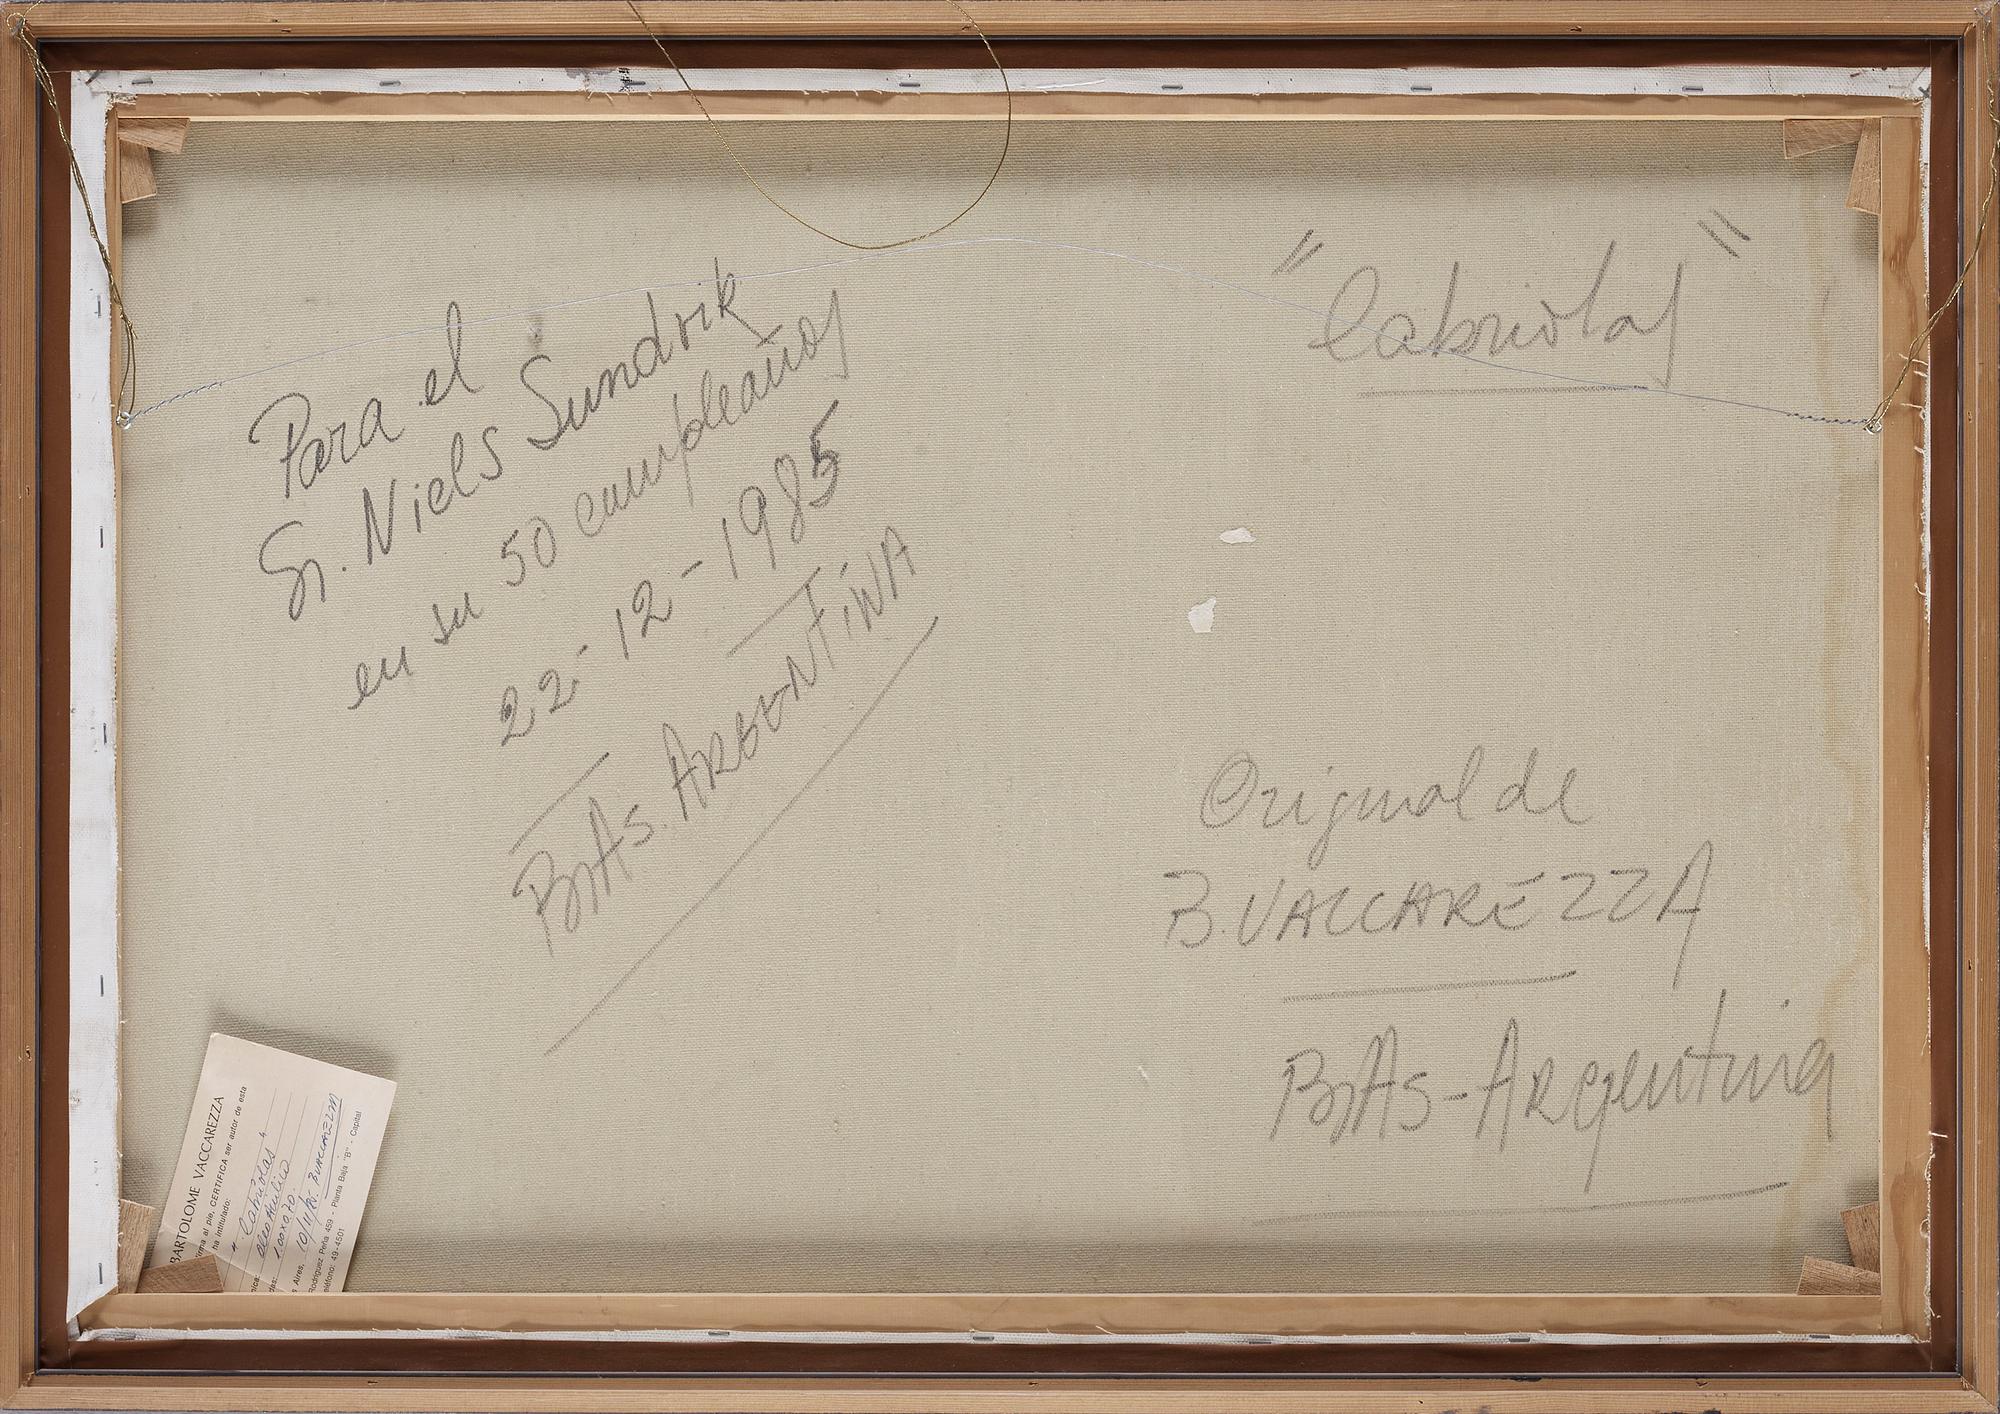 Para el
Sr. Niels Sundvik
en su 50 cumpleaños
22-12-1985
BsAs. ARGENTINA
"Cabriolas"
Original de
B. VACCAREZZA
BsAs-Argentina
BARTOLOME VACCAREZZA
firma al pie, CERTIFICA ser autor de esta
ha intitulado:
"Cabriolas"
oleo
1.00x0.70
s Aires, 10/11/85. B VACCAREZZA
Rodriguez Peña 459 - Planta Baja "B" - Capital
eléfono: 49-4501